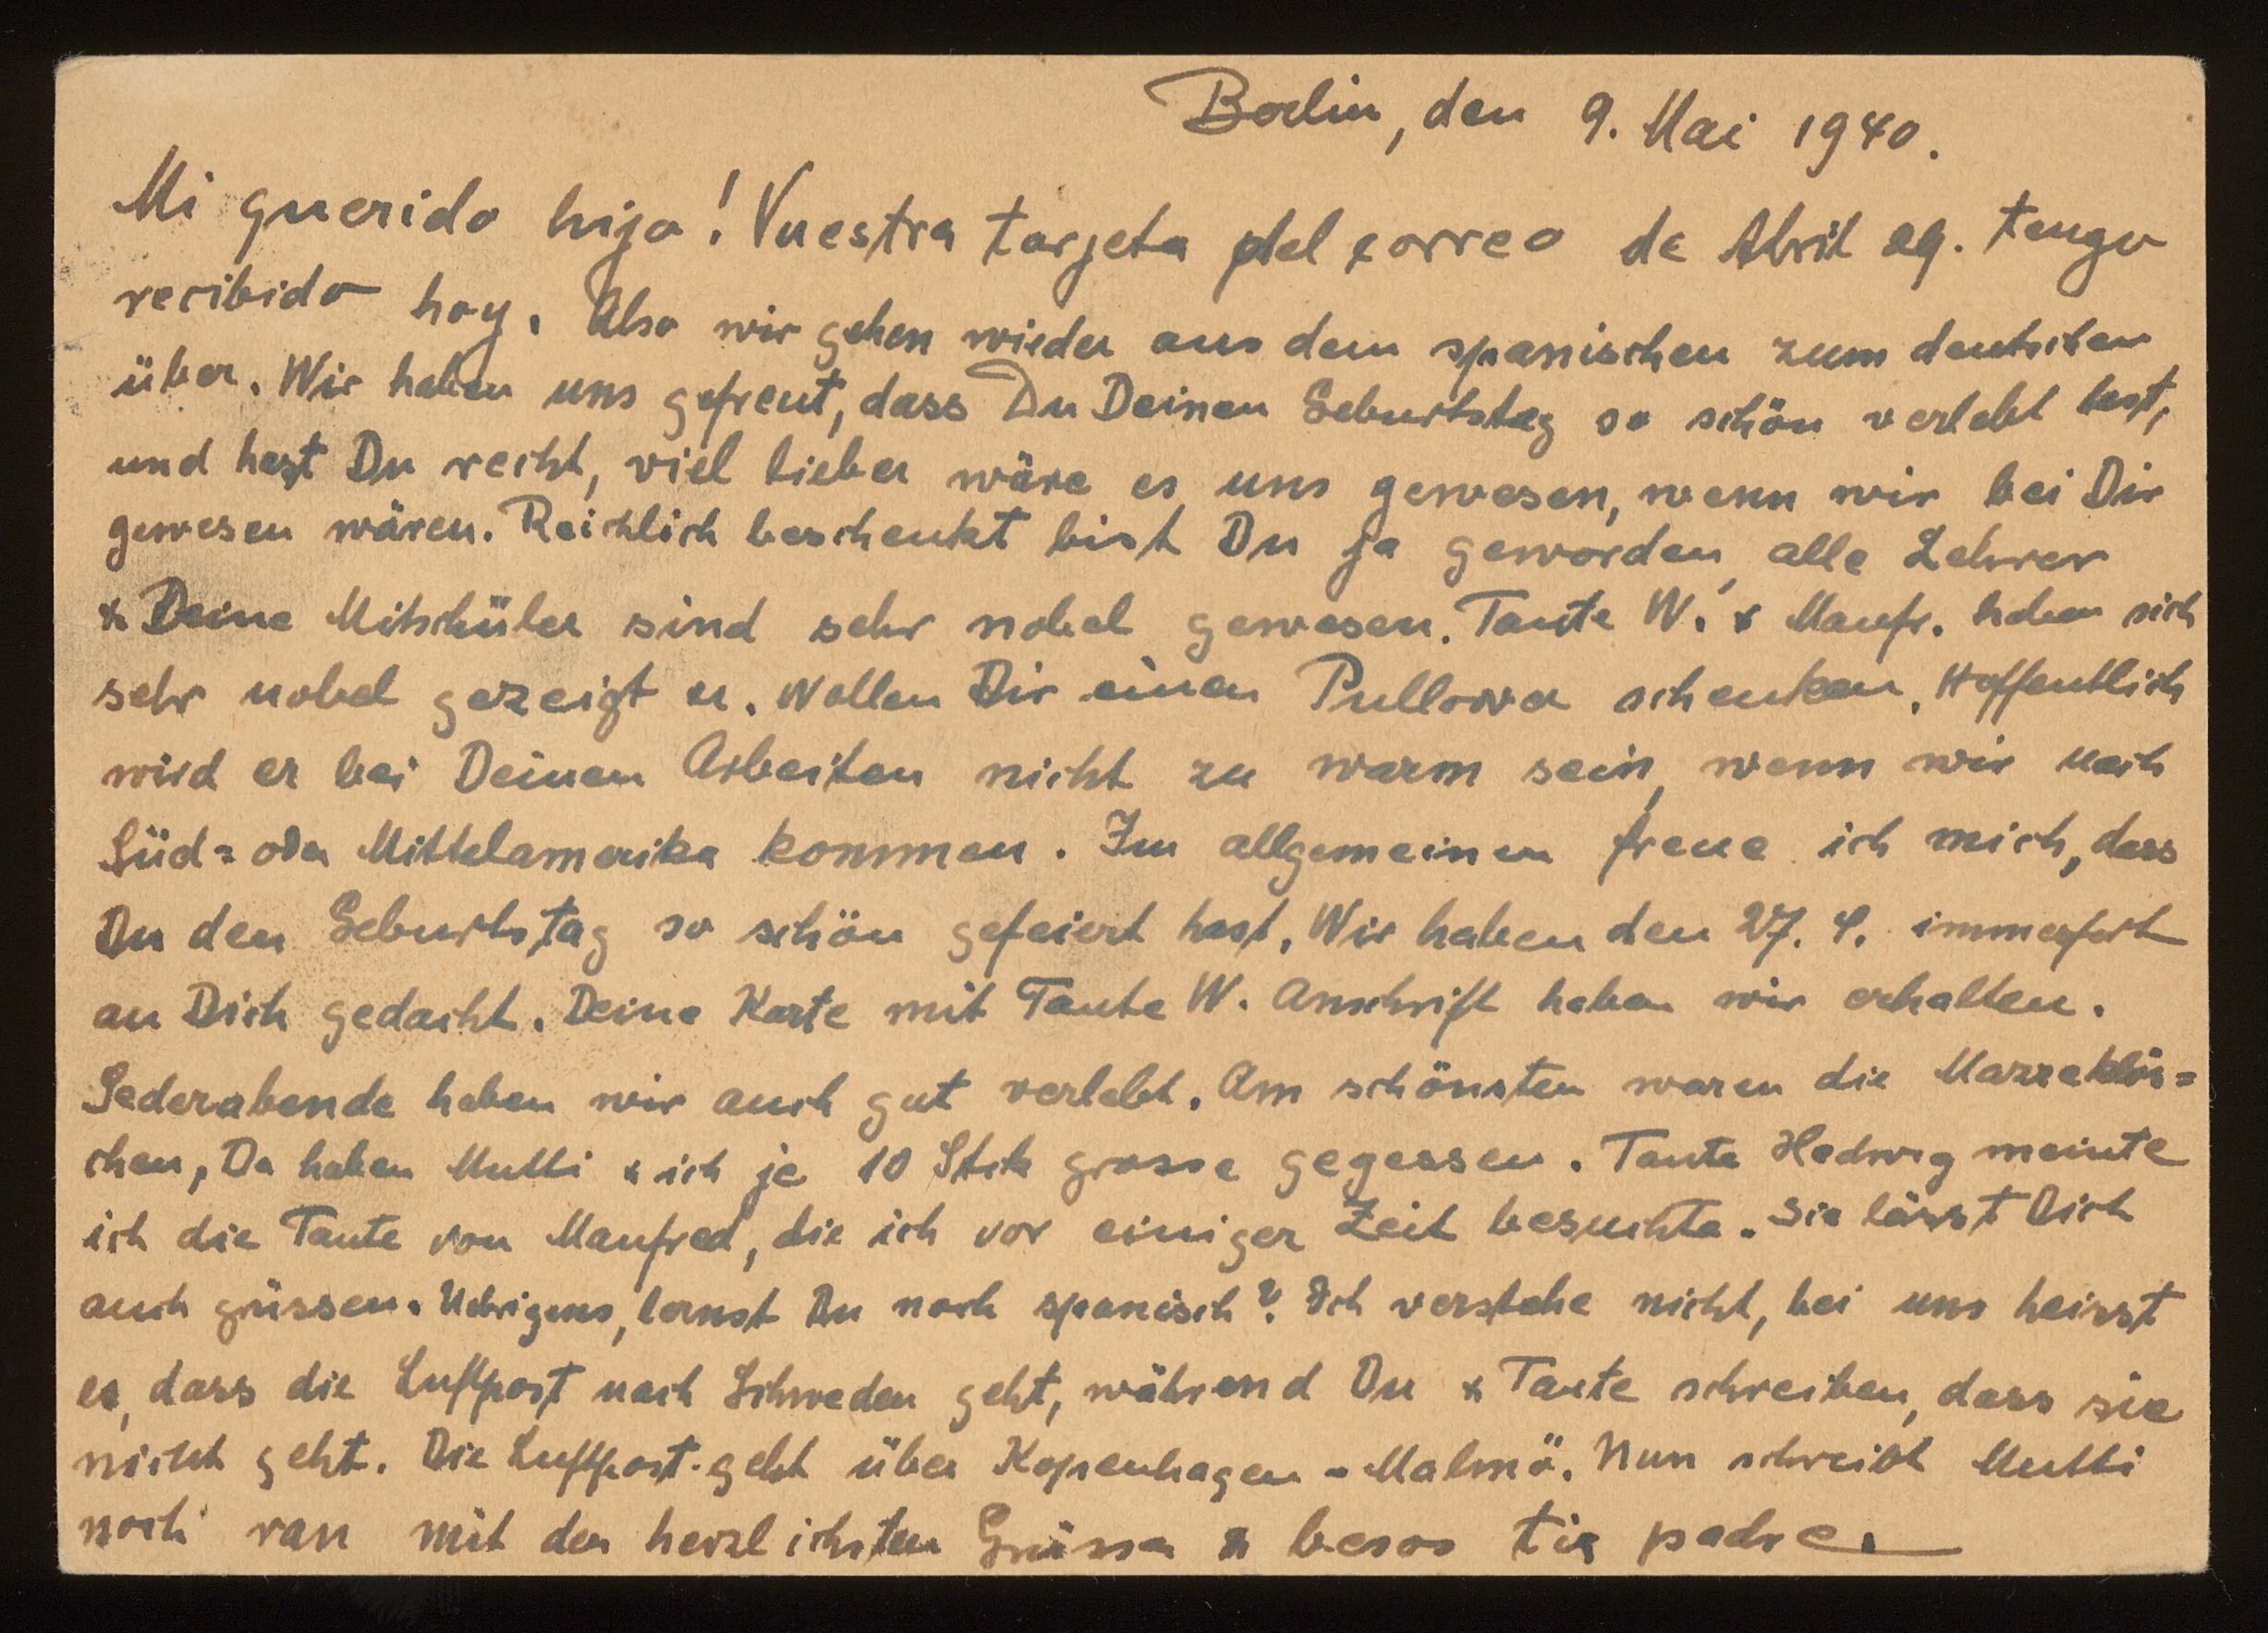 Berlin, den 9. Mai 1940.
Mi querido hijo! Vuestra tarjeta del correo de Abril 29. tengo
recibido hoy. Also wir gehen wieder aus dem spanischen zum deutschen
über. Wir haben uns gefreut, dass Du Deinen Geburtstag so schön verlebt hast,
und hast Du recht, viel lieber wäre es uns gewesen, wenn wir bei Dir
gewesen wären. Reichlich beschenkt bist Du ja geworden, alle Lehrer
& Deine Mitschüler sind sehr nobel gewesen. Tante W. & Manfr. haben sich
sehr nobel gezeigt u. wollen Dir einen Pullover schenken. Hoffentlich
wird er bei Deinen Arbeiten nicht zu warm sein, wenn wir nach
Süd= oder Mittelamerika kommen. Im allgemeinen freue ich mich, dass
Du den Geburtstag so schön gefeiert hast. Wir haben den 27. 4. immerfort
an Dich gedacht. Deine Karte mit Tante W. Anschrift haben wir erhalten.
Sederabende haben wir auch gut verlebt. Am schönsten waren die Mazzeklös=
chen, Da haben Mutti & ich je 10 Stck grosse gegessen. Tante Hedwig meinte
ich die Tante von Manfred, die ich vor einiger Zeit besuchte. Sie lässt Dich
auch grüssen. Uebrigens, lernst Du noch spanisch? Ich verstehe nicht, bei uns heisst
es, dass die Luftpost nach Schweden geht, während Du & Tante schreiben, dass sie
nicht geht. Die Luftpost geht über Kopenhagen - Malmö. Nun schreibt Mutti
noch ran mit den herzlichsten Grüssen & besos padre.